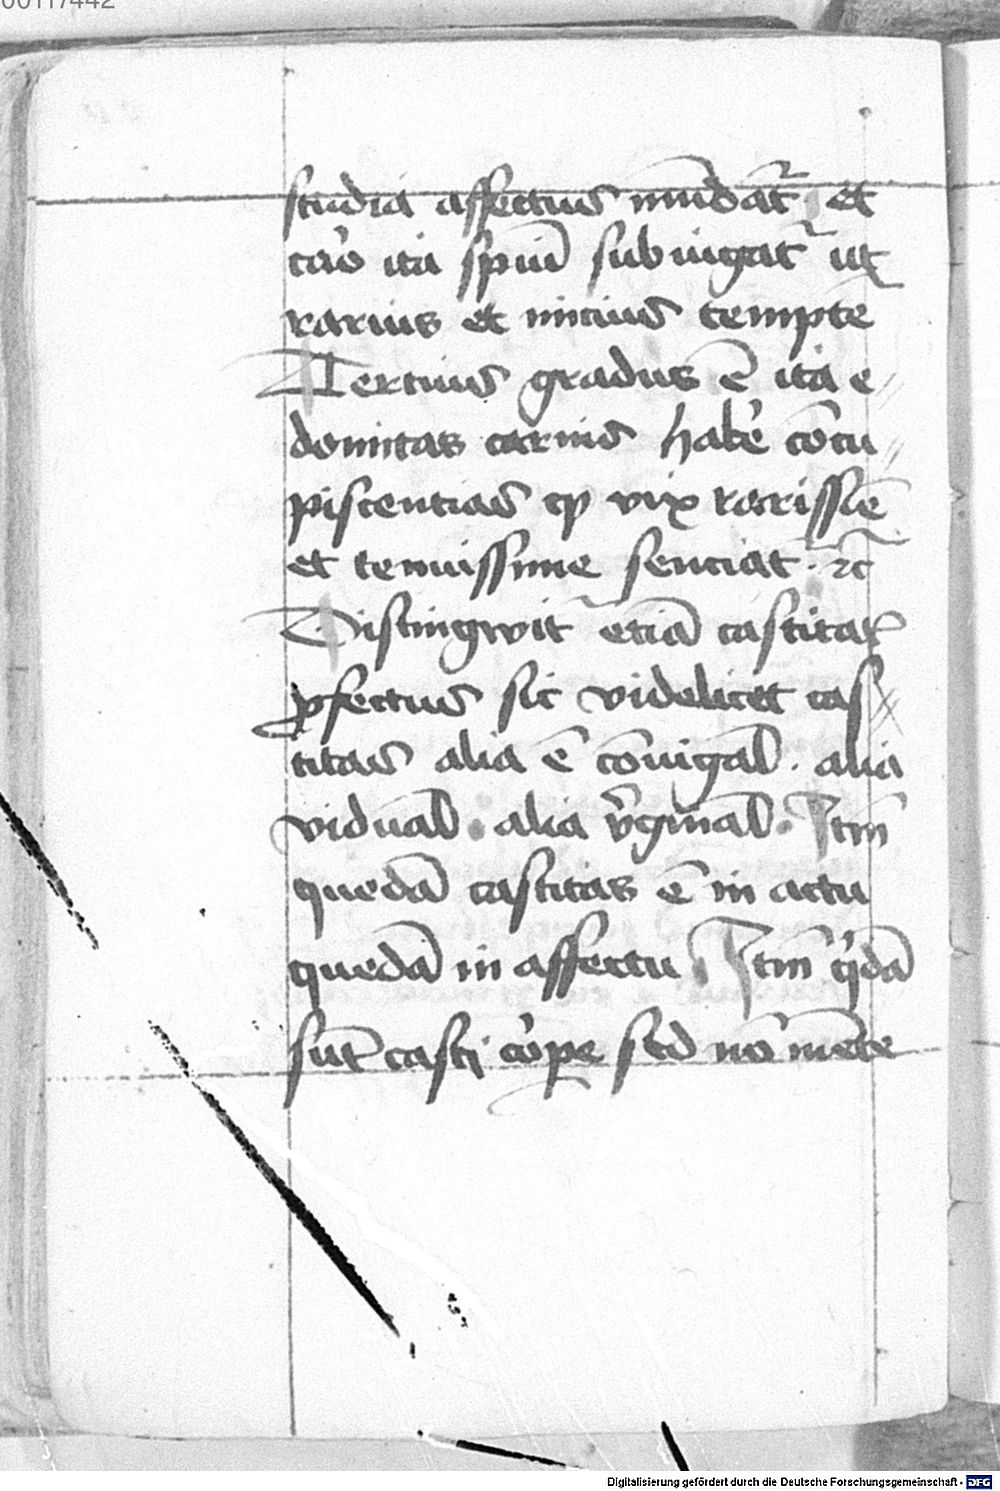 00117442
studia affectus mūdat᷑ et
caro ita spūi subiugat᷑ ut
rarius et minus tempte
Tercius gradus ē ita e
domitas carnis habe᷑ cōcu
piscencias qꝫ vix rarissīe
et tenuissime senciat · ⁊c̄
Distingwit᷑ etiā castitat᷑
ꝑfectus sic videlicet cas
titas alia ē cōiugal᷑ · alia
vidual᷑ · alia v᷑ginal᷑ · Itm̄
quedā castitas ē in actu
quedā in affectu Itm̄ qͥdā
sūt casti cor᷑pe sed nō mēte
Digitalisierung gefördert durch die Deutsche Forschungsgemeinschaft - DFG